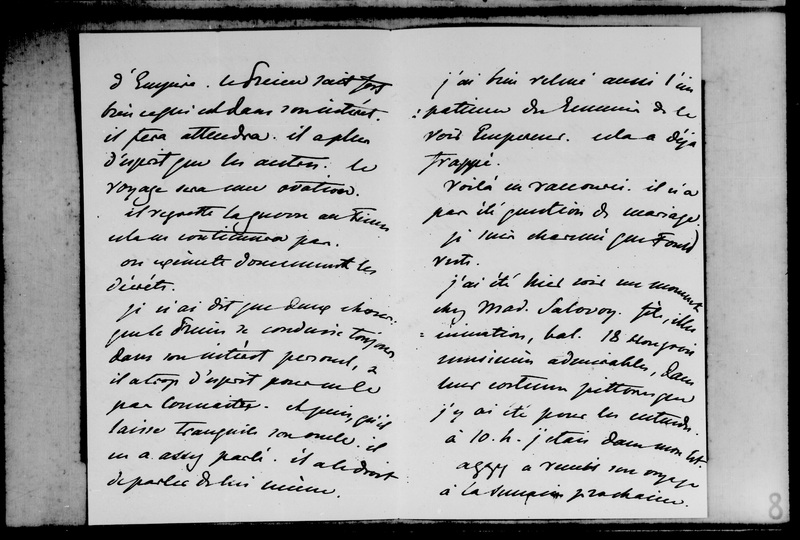 d'Empire. le Prince sait fort
bien ce qui est dans son intérêt.
il fera attendre. il a plus
d'esprit que les autres. le
voyage sera une ovation.
il regrette la guerre au
cela ne continuera pas.
on exécute doucement les
décrets.
je n'ai dit que deux choses:
que le Prince se conduise toujours
dans son intérêt personnel,
il a trop d'esprit pour ne le
pas connaître. et puis, qu'il
laisse tranquille son oncle. il
en a assez parlé. il a le droit
de parler de lui même.
j'ai bien relevé aussi l'im
: patience du de le
voir Empereur. cela a déjà
frappé.
voilà en raccourci. il n'a
pas été question de mariage.
je suis charmé que Fould
reste.
j'ai été hier soir un moment
chez Mad. Salovoy. fête, illu
: mination, bal. 18 hongrois
musiciens admirables, dans
leur costume pittoresque
j'y ai été pour les entendre.
à 10. h. j'étais dans mon lit.
a remis son voyage
à la semaine prochaine.
8